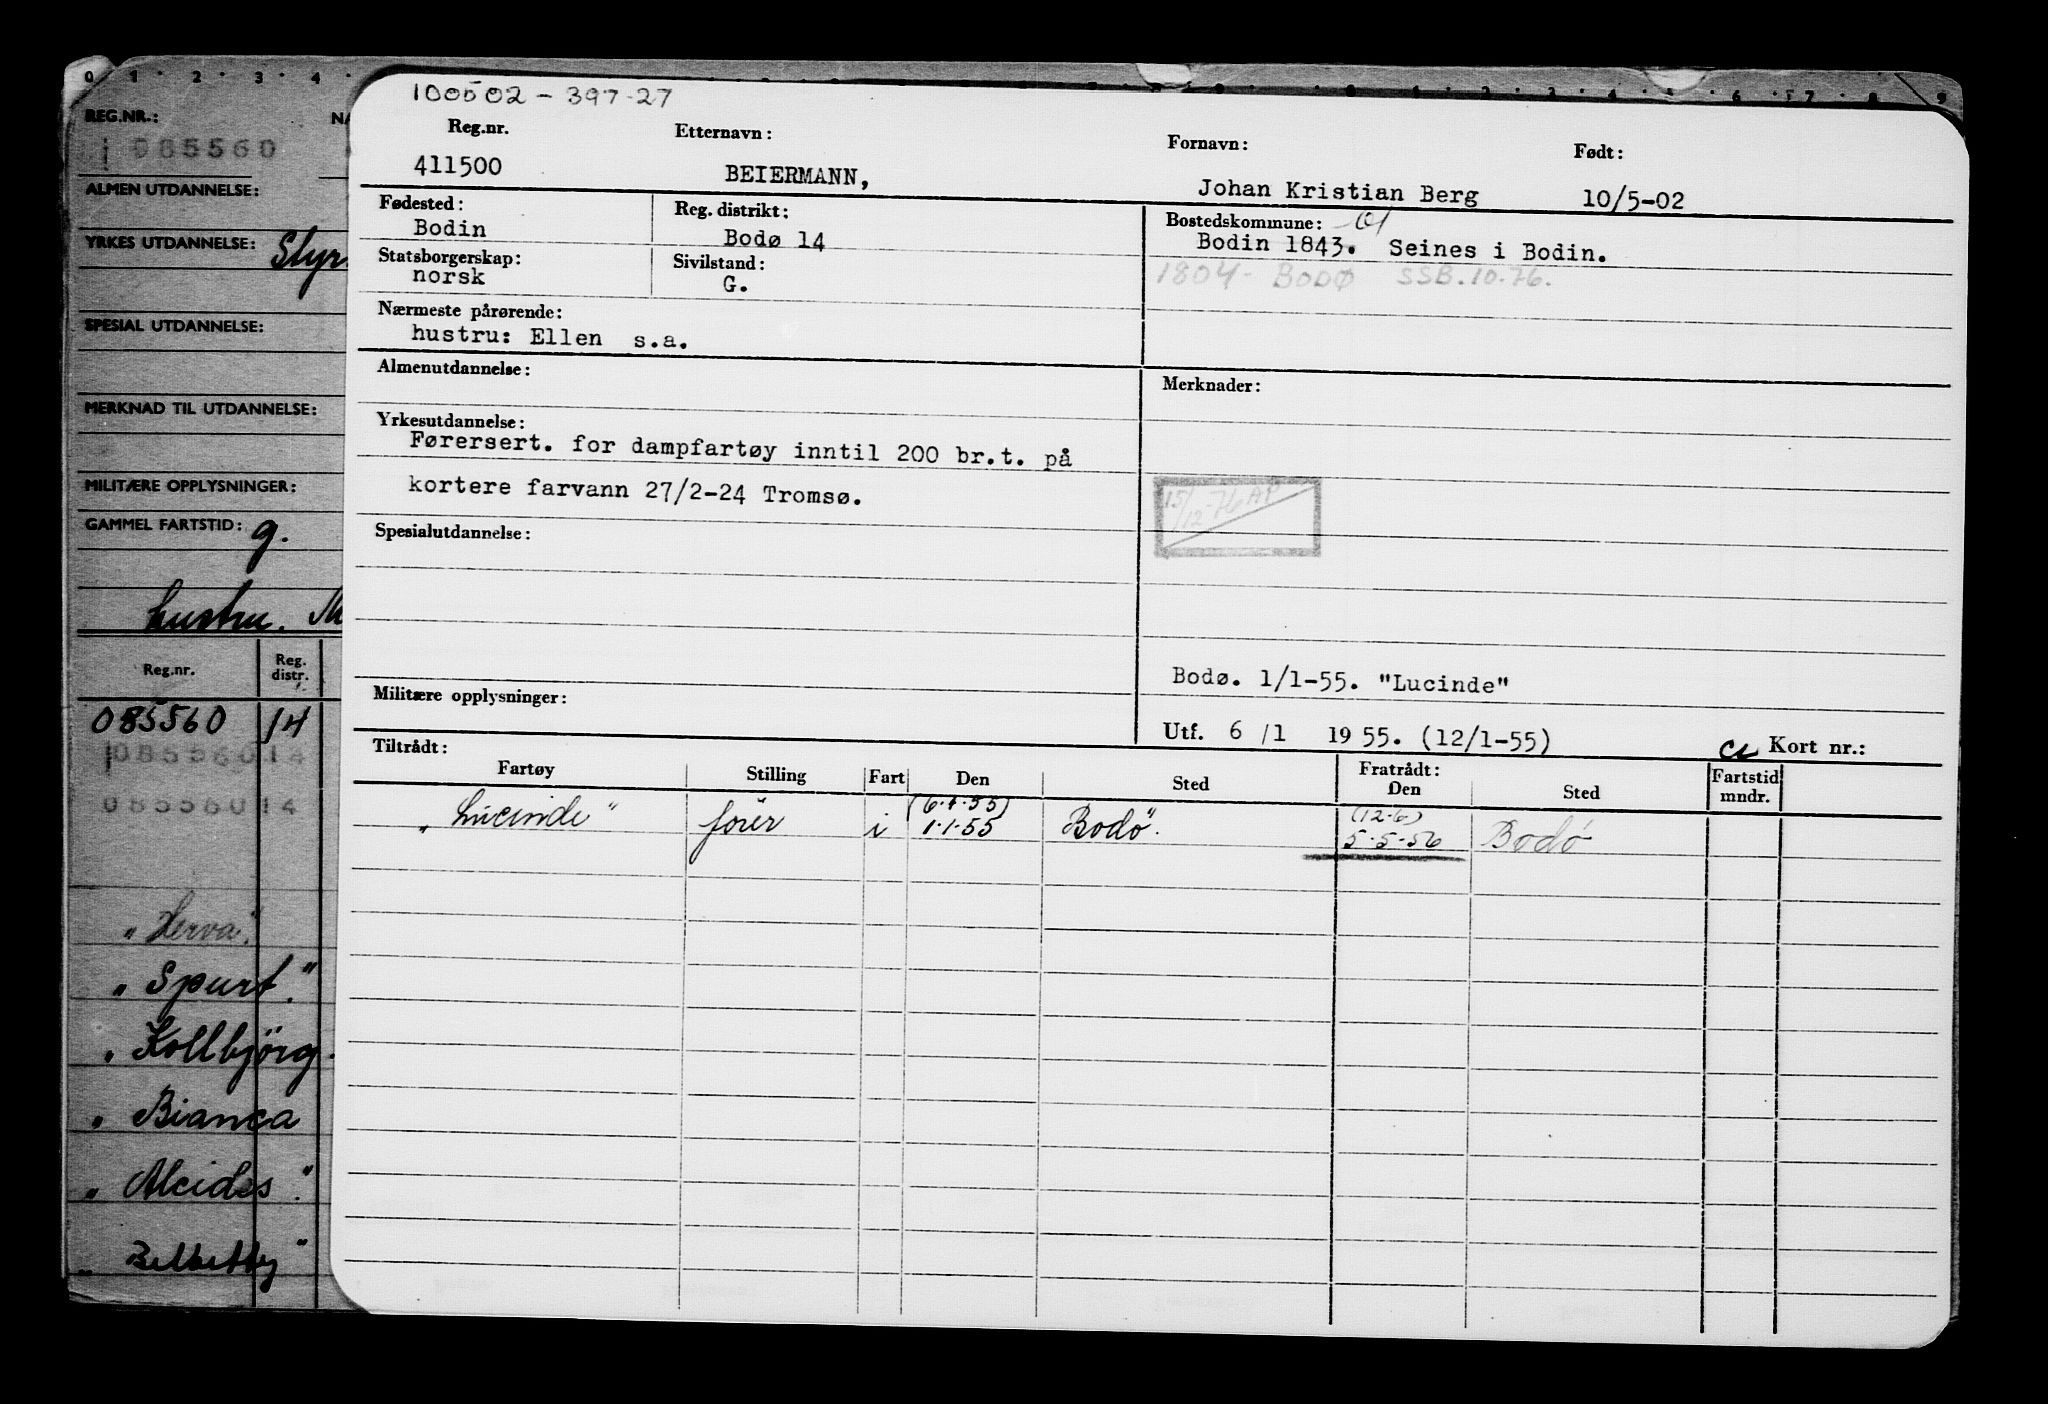 0 1 2 3 4
REG.NR.:
085560
ALMEN UTDANNELSE:
YRKES UTDANNELSE: Styr.
SPESIAL UTDANNELSE:
MERKNAD TIL UTDANNELSE:
MILITÆRE OPPLYSNINGER:
GAMMEL FARTSTID: g.
hustru.
Reg.nr. Reg. distr.
085560 14
08556014
08556014
"Herva".
"Spurt."
"Kollbjörg.
"Bianca
"Alcides".
100502 - 397-27
Reg.nr. Etternavn: Fornavn: Født:
411500 BEIERMANN, Johan Kristian Berg 10/5-02
Fødested: Reg. distrikt: Bostedskommune: 01
Bodin Bodø 14 Bodin 1843. Seines i Bodin.
Statsborgerskap: Sivilstand:
norsk G. 1804 - BODØ SSB.10.76.
Nærmeste pårørende:
hustru: Ellen s.a.
Almenutdannelse: Merknader:
Yrkesutdannelse:
Førersert. for dampfartøy inntil 200 br.t. på
kortere farvann 27/2-24 Tromsø.
15/12-76 AP
Spesialutdannelse:
Bodø. 1/1-55. "Lucinde"
Militære opplysninger:
Utf. 6/1 1955. (12/1-55) Kort nr.:
Tiltrådt: Fratrådt:
Fartøy Stilling Fart Den Sted Den Sted Fartstid mndr.
(6.1.55) (12-6)
"Lucinde" fører i 1.1.55 Bodö. 5-5-56 Bodö